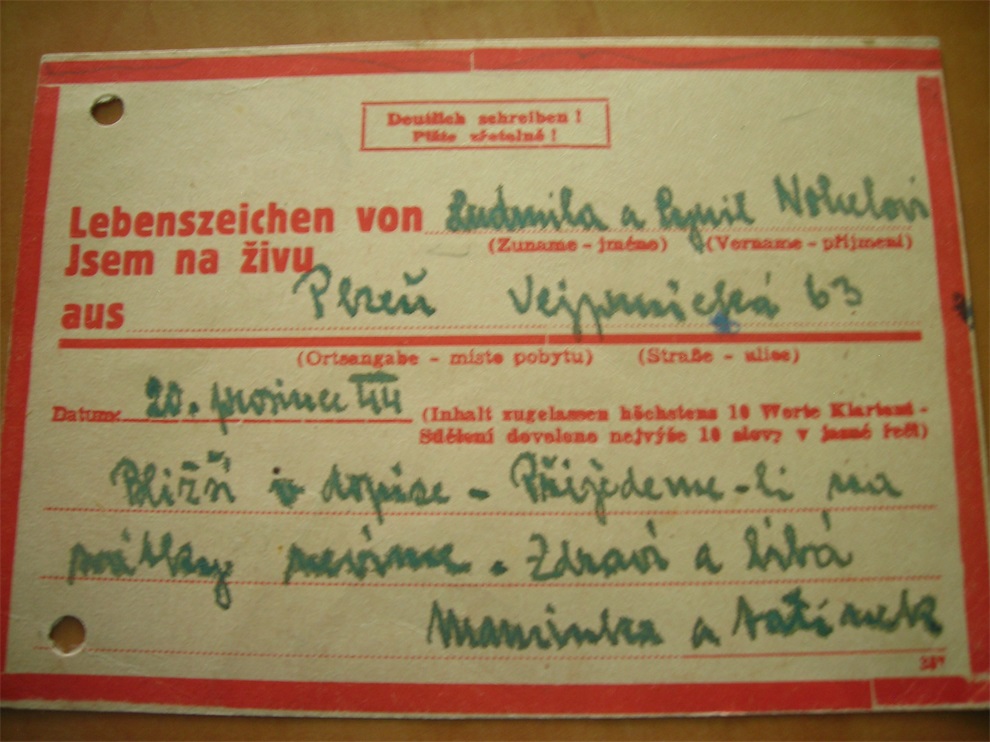 Deutlich schreiben!
Pište zřetelně!
Lebenszeichen von Ludmila a Cyril Nohelovi
(Zuname - jméno) (Vorname - příjmení)
Jsem na živu
aus Plzeň Vejprnická 63
(Ortsangabe - místo pobytu) (Straße - ulice)
Datum: 20. prosince 44 (Inhalt zugelassen höchstens 10 Worte Klartext -
Sdělení dovoleno nejvýše 10 slovy v jasné řeči)
Bližší v dopise - Přijedeme-li na
svátky nevíme. Zdraví a líbá
Maminka a tatínek